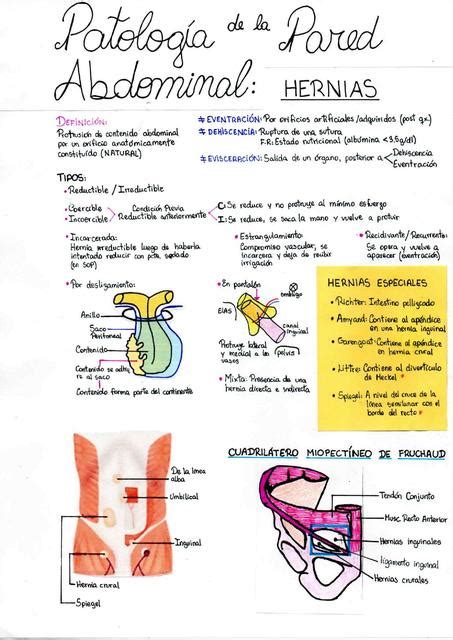 Patología de la Pared
Abdominal: HERNIAS
DEFINICIÓN:
Protrusión de contenido abdominal
por un orificio anatómicamente
constituido (NATURAL)
# EVENTRACIÓN: Por orificios artificiales/adquiridos (post qx)
# DEHISCENCIA: Ruptura de una sutura
F.R: Estado nutricional (albúmina <3,5g/dl)
# EVISCERACIÓN: Salida de un órgano, posterior a
Dehiscencia
Eventración
TIPOS:
• Reductible / Irreductible
• Coercible
• Incoercible
Condición Previa
Reductible anteriormente
C: Se reduce y no protruye al mínimo esfuerzo
I: Se reduce, se saca la mano y vuelve a protruir
• Incarcerada:
Hernia irreductible luego de haberla
intentado reducir con pcte sedado
(en SOP)
• Estrangulamiento:
Compromiso vascular, se
incarcera y deja de recibir
irrigación
• Recidivante/Recurrente:
Se opera y vuelve a
aparecer (eventración)
• Por deslizamiento:
Anillo
Saco
Peritoneal
Contenido
Contenido se adhie
re al saco
Contenido forma parte del continente
• En pantalón
EIAS
ombligo
canal
inguinal
pelvis
Protruye lateral
y medial a los
vasos
• Mixta: Presencia de una
hernia directa e indirecta
HERNIAS ESPECIALES
• Richter: Intestino pellizcado
• Amyand: Contiene al apéndice
en una hernia inguinal
• Garengoat: Contiene al apéndice
en hernia crural
• Littre: Contiene al divertículo
de Meckel
• Spiegel: A nivel del cruce de la
línea semilunar con el
borde del recto
De la línea
alba
Umbilical
Inguinal
Hernia crural
Spiegel
CUADRILÁTERO MIOPECTÍNEO DE FRUCHAUD
Tendón Conjunto
Musc Recto Anterior
Hernias inguinales
ligamento inguinal
Hernias crurales